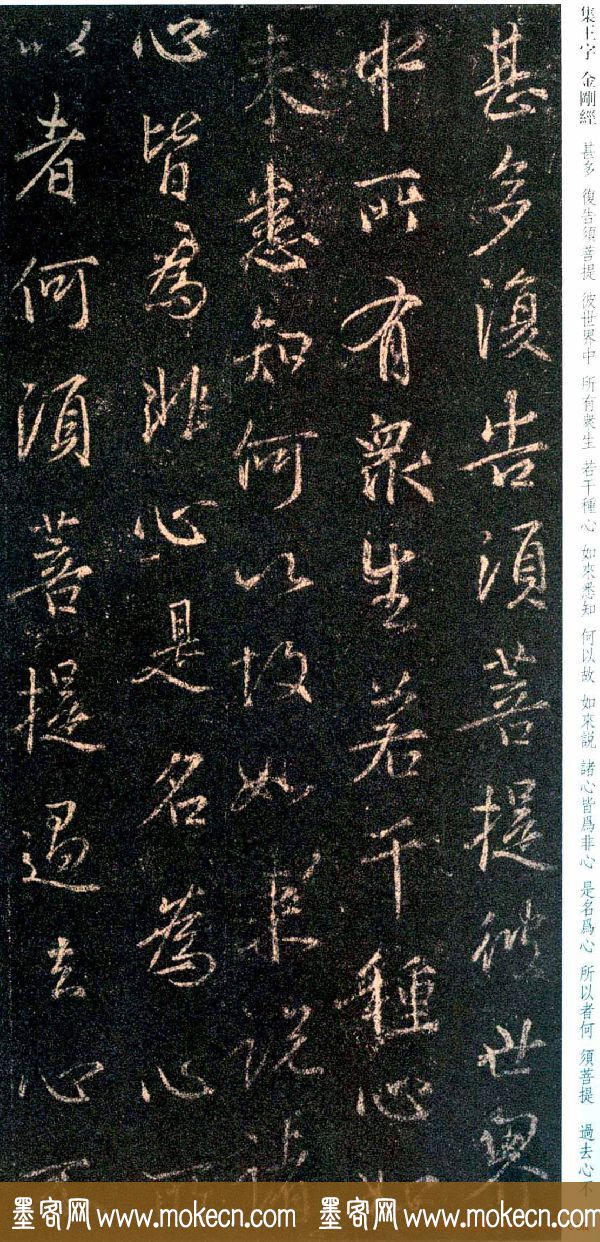 集王字 金剛經 甚多 復告須菩提 彼世界中 所有衆生 若干種心 如來悉知 何以故 如來說 諸心皆爲非心 是名爲心 所以者何 須菩提 過去心不
甚多復告須菩提彼世界
中所有衆生若干種心如
來悉知何以故如來說諸
心皆為非心是名為心所
以者何須菩提過去心不
墨客网 www.mokecn.com 墨客网 www.mokecn.com